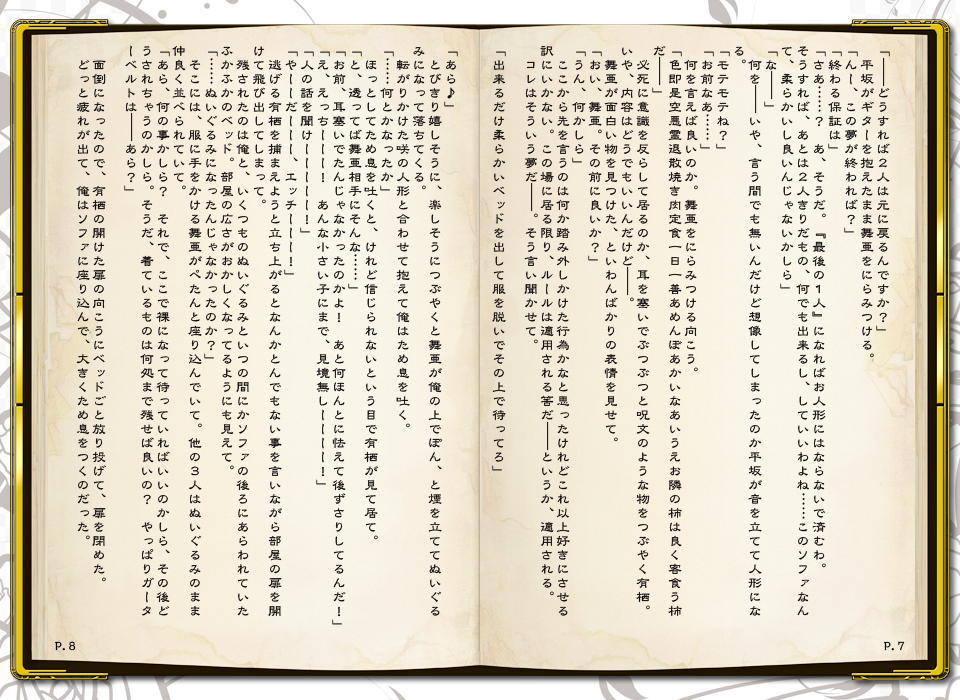 「――どうすれば２人は元に戻るんですか？」
　平坂がギターを抱えたまま舞亜をにらみつける。
「んー、この夢が終われば？」
「終わる保証は」
「さあ……？　あ、そうだ。『最後の１人』になればお人形にはならないで済むわ。
そうすれば、あとは２人きりだもの、何でも出来るし、していいわよね……このソファなん
て、柔らかいし良いんじゃないかしら」
「な――」
　何を――いや、言う間でも無いんだけど想像してしまったのか平坂が音を立てて人形にな
る。
「モテモテね？」
「お前なあ……」
　何を言えば良いのか。舞亜をにらみつける向こう。
「色即是空悪霊退散焼き肉定食一日一善あめんぼあかいなあいうえお隣の柿は良く客食う柿
だ――」
　必死に意識を反らして居るのか、耳を塞いでぶつぶつと呪文のような物をつぶやく有栖。
いや、内容はどうでもいいんだけど――。
　舞亜が面白い物を見つけた、といわんばかりの表情を見せて。
「おい、舞亜。その前に良いか？」
「うん、何かしら」
　ここから先を言うのは何か踏み外しかけた行為かなと思ったけれどこれ以上好きにさせる
訳にいかない。この場に居る限り、ルールは適用される筈だ――というか、適用される。
　コレはそういう夢だ――。そう言い聞かせて。
「出来るだけ柔らかいベッドを出して服を脱いでその上で待ってろ」
P.7
「あら♪」
　とびきり嬉しそうに、楽しそうにつぶやくと舞亜が俺の上でぽん、と煙を立ててぬいぐる
みになって落ちてくる。
　転がりかけた咲の人形と合わせて抱えて俺はため息を吐く。
「……何とかなったか」
　ほっとしてため息を吐くと、けれど信じられないという目で有栖が見て居て。
「と、透ってば舞亜相手にそんな……」
「お前、耳塞いでたんじゃなかったのかよ！　あと何ほんとに怯えて後ずさりしてるんだ！」
「え、えっちーーーー！　あんな小さい子にまで、見境無しーーーー！」
「人の話を聞けーーーー！」
「やーーだーーーー、エッチーーーー！」
　逃げる有栖を捕まえようと立ち上がるとなんかとんでもない事を言いながら部屋の扉を開
けて飛び出してしまって。
　残されたのは俺と、いくつものぬいぐるみといつの間にかソファの後ろにあらわれていた
ふかふかのベッド。部屋の広さがおかしくなってるようにも見えて。
「……ぬいぐるみになったんじゃなかったのか？」
　そこには、服に手をかける舞亜がぺたんと座り込んでいて。他の３人はぬいぐるみのまま
仲良く並べられていて。
「あら、何の事かしら？　それで、ここで裸になって待っていればいいのかしら、その後ど
うされちゃうのかしら。そうだ、着ているものは何処まで残せば良いの？　やっぱりガータ
ーベルトは――あら？」
　面倒になったので、有栖の開けた扉の向こうにベッドごと放り投げて、扉を閉めた。
　どっと疲れが出て、俺はソファに座り込んで、大きくため息をつくのだった。
P.8